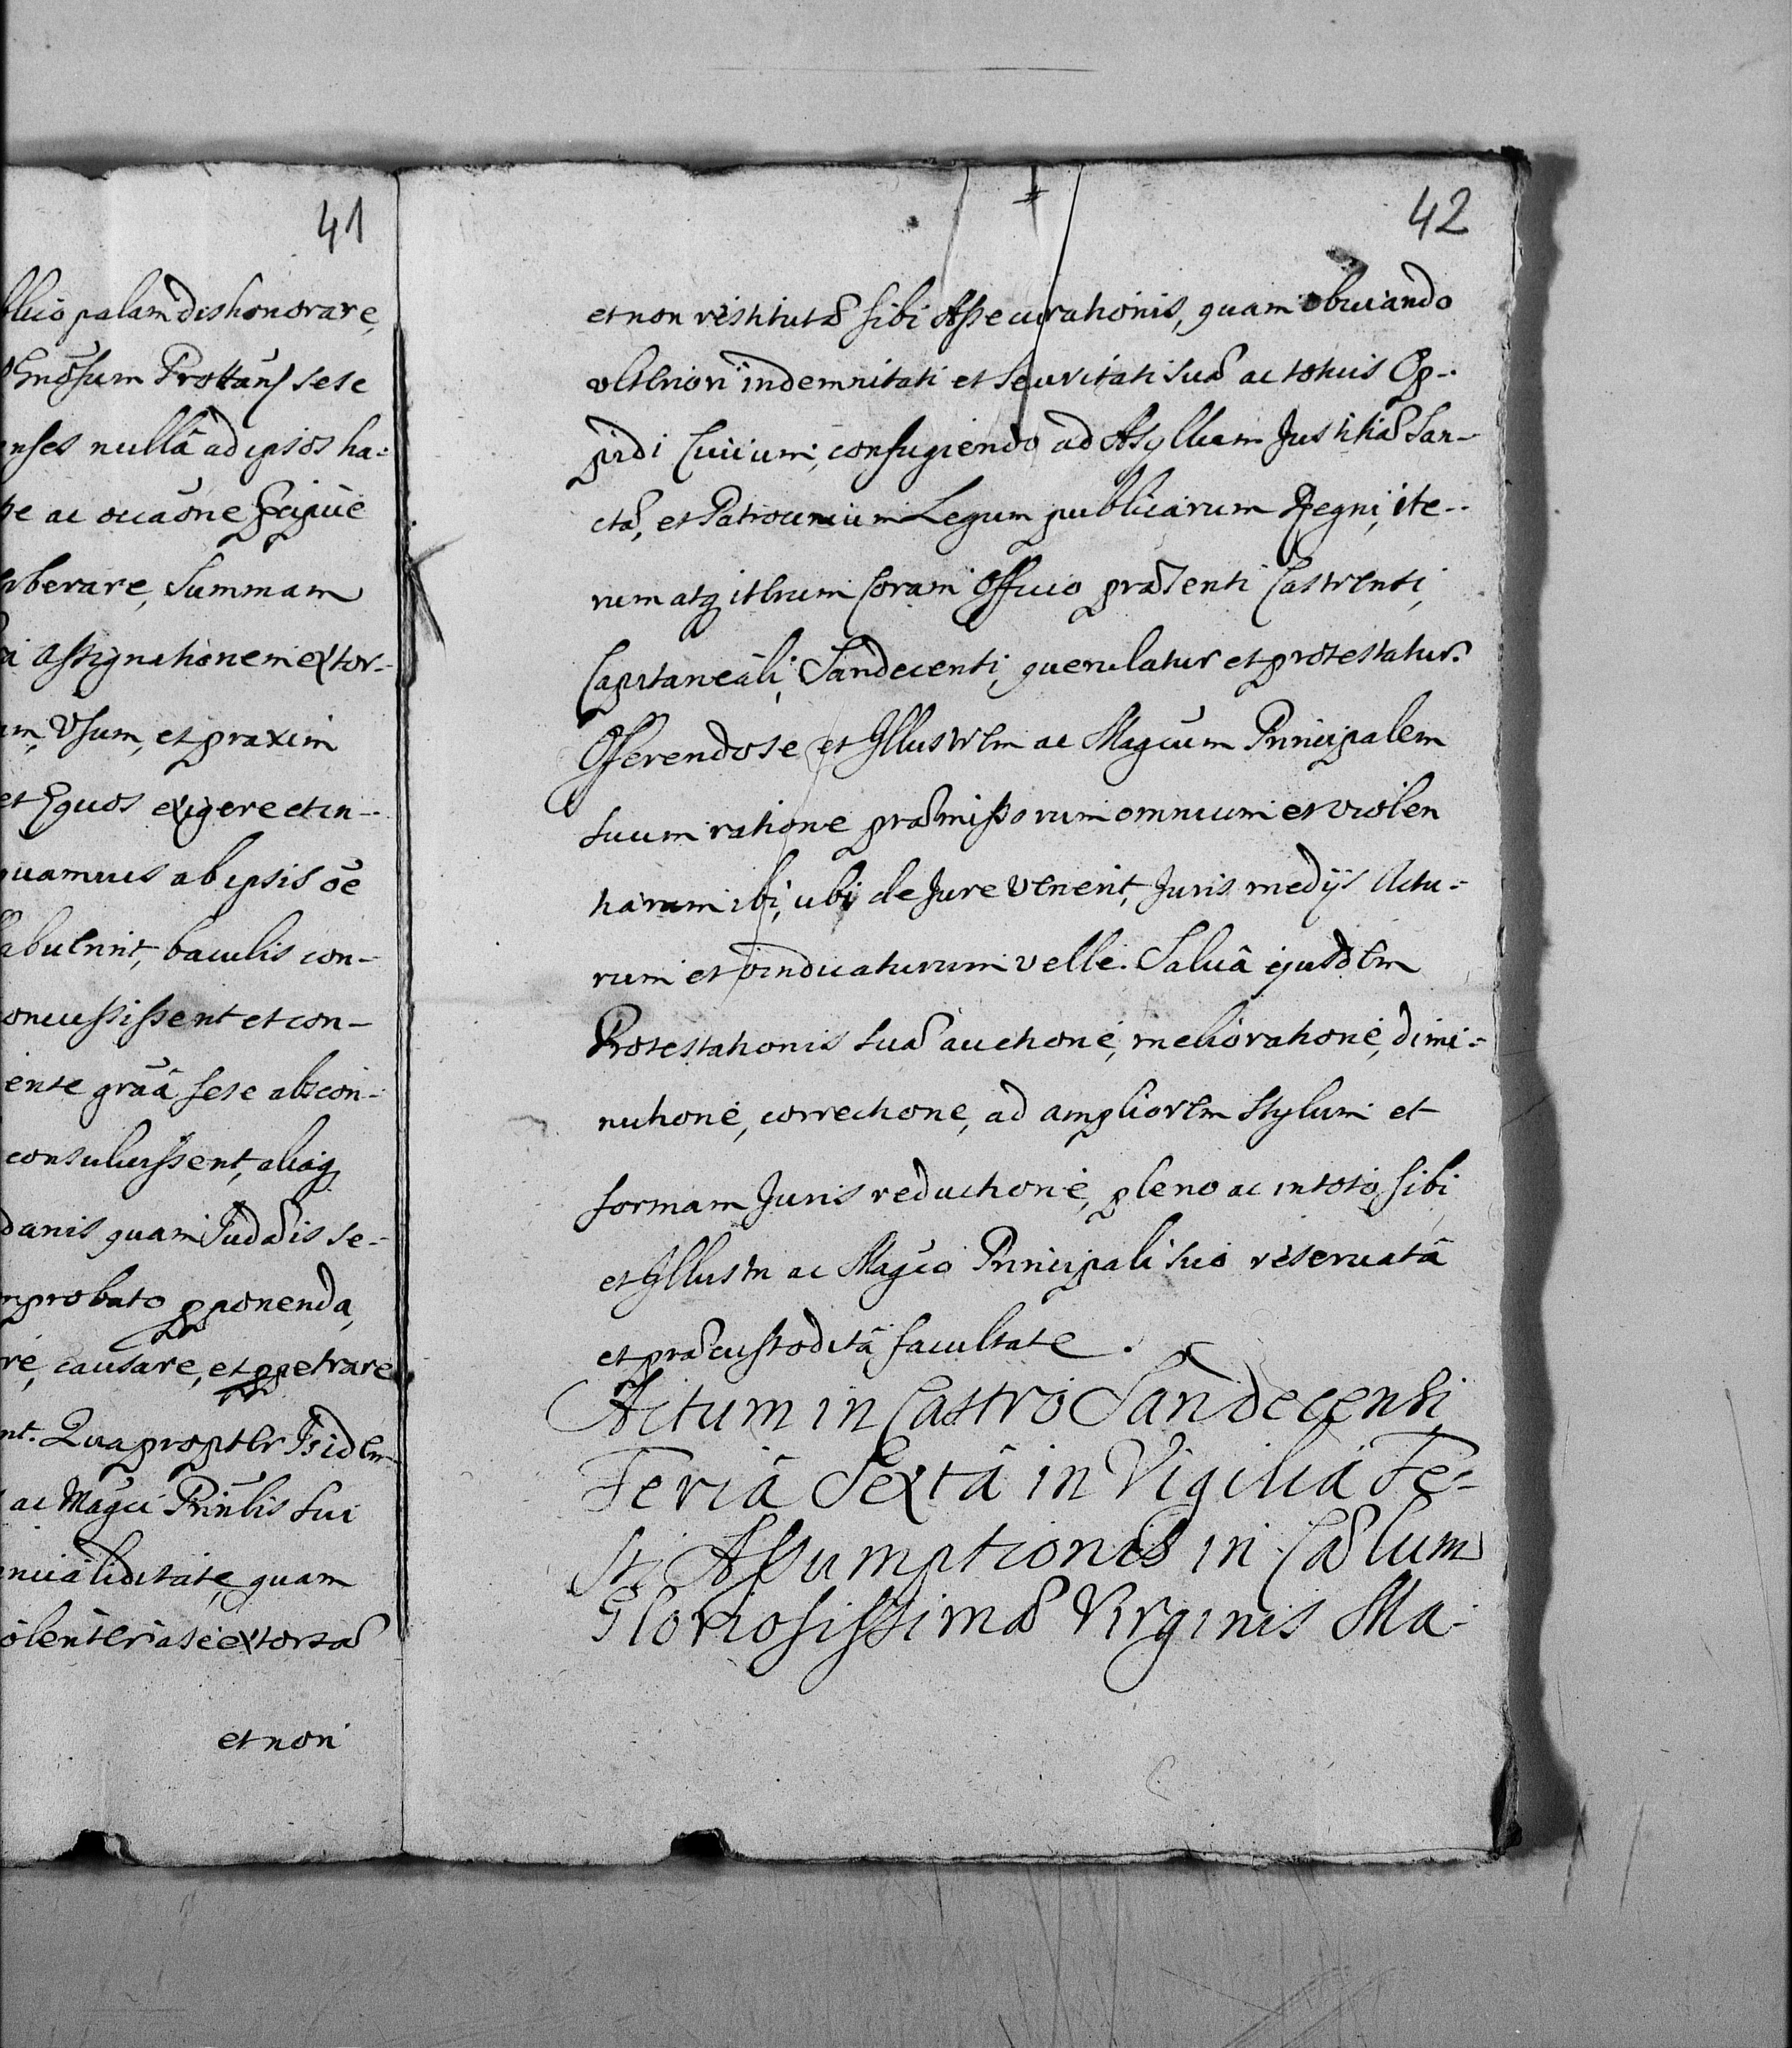 41
blico palam dishonorare,
Gnosum Prottan sese
enses nullâ ad ipsos ha-
te ac occaône
berare, Summam
assignationem extor-
am, Usum, et praxim
et Equos exigere et in-
quamvis ab ipsis oe
habuerint, baculis con-
concussissent et con-
ente graâ sese abscon-
consuluissent, aliaq
danis quam Judæis se-
improbato pponenda,
re, causare, et ppetrare
nt. Quapropter Isidem
ac Magci Prinlis sui
invaliditate, quam
violenter a se extortæ
et non
42
et non restitutæ sibi Assecurationis, quam obviando
ulteriori indemnitati et Securitati suæ ac totius Op-
pidi Civium, confugiendo ad Asyllum Justitiæ San-
ctæ, et Patrocinium Legum publicarum Regni, ite-
rum atq iterum Coram Officio præsenti Castrensi,
Capitaneali, Sandecensi, querulatur et protestatur.
Offerendo se et Illustrem ac Magcum Principalem
suum ratione præmissorum omnium et violen
tiarum ibi, ubi de Jure venerit, Juris medijs Actu-
rum et vindicaturum velle. Salvâ ejusdem
Protestationis suæ auctione, melioratione, dimi-
nutione, correctione, ad ampliorem stylum et
formam Juris reductione, pleno ac in toto sibi,
et Illustri ac Magco Principali suo reservatâ
et præcustoditâ facultate.
Actum in Castro Sandecensi
Feriâ Sextâ in Vigiliâ Fe-
sti Assumptionis in Cælum
Gloriosissimæ Virginis Ma-